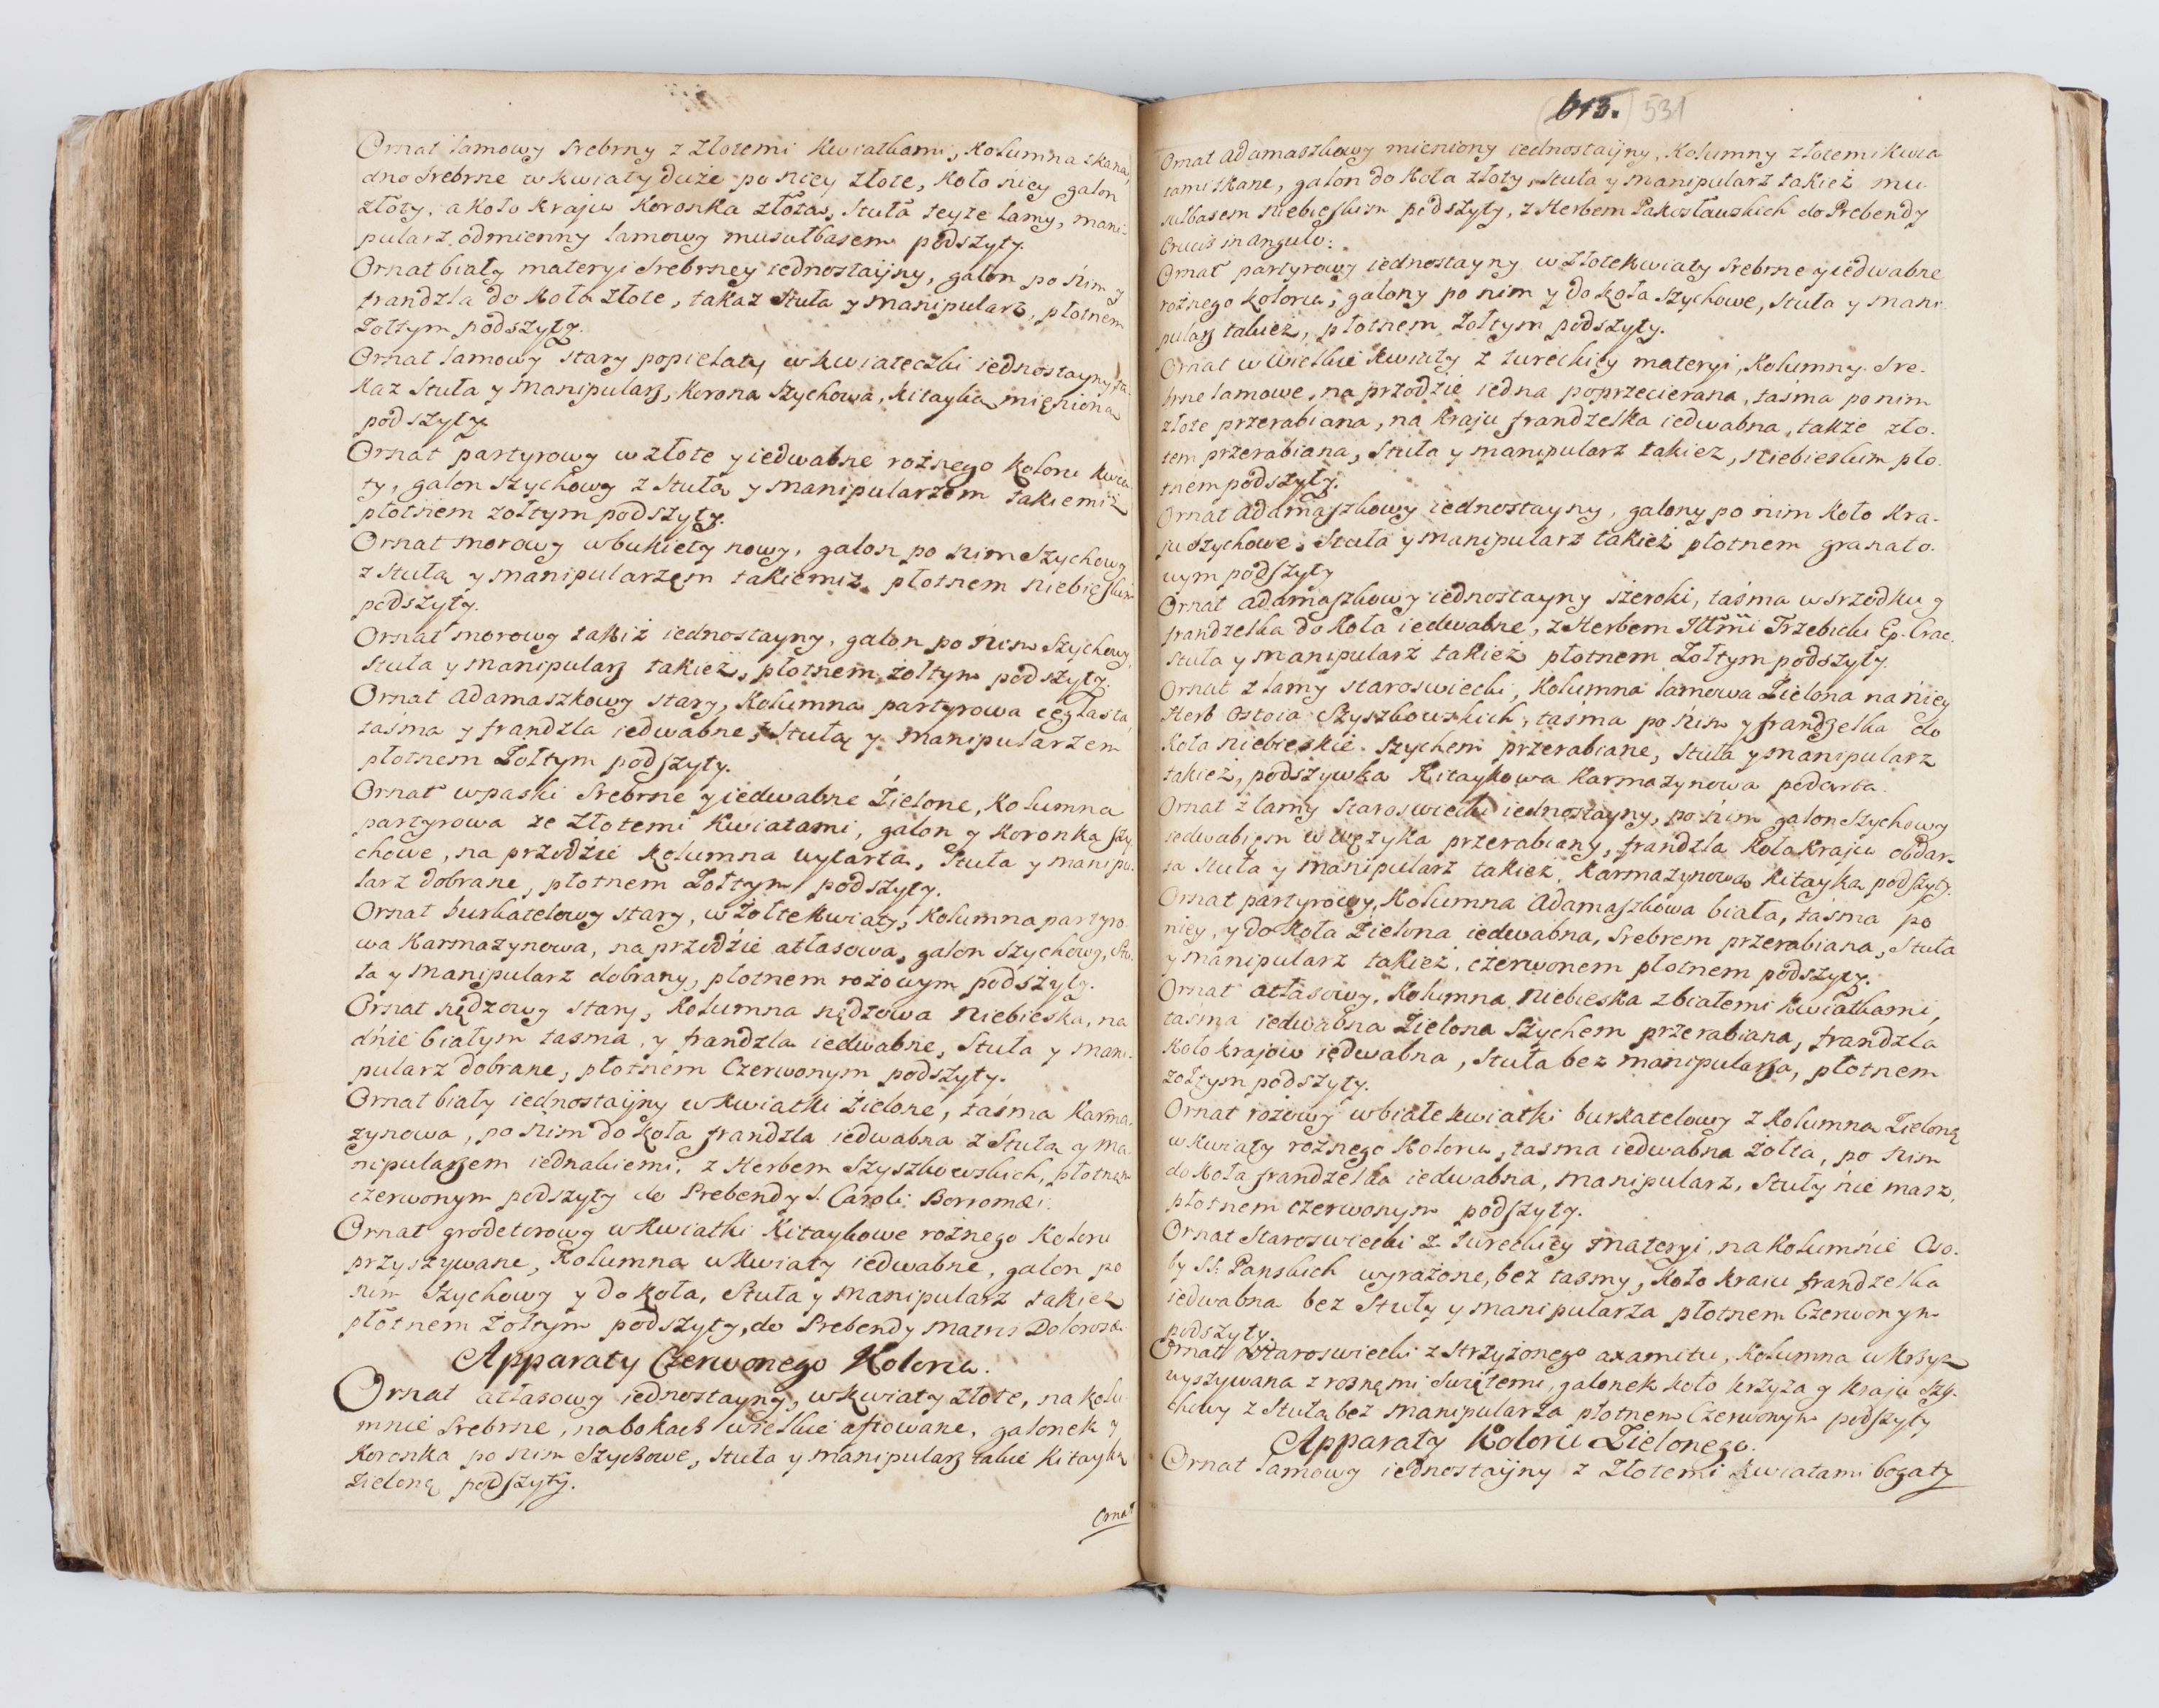 Ornat lamowy srebrny z złotemi kwiatkami, kolumna tkana,
dno srebrne w kwiaty duże po niey złote, koło niey galon
złoty, a koło kraju koronka złota, stuła teyże lamy, mani-
pularz odmienny lamowy musułbasem podszyty.
Ornat biały materyi srebrney iednostayny, galon po nim y
frandzla do koła złote, takaż stuła y manipularz, płotnem
żołtym podszyty.
Ornat lamowy stary popielaty w kwiateczki iednostayny, ta-
każ stuła y manipularz, korona szychowa, kitayka mieniona
podszyty
Ornat partyrowy w złote y iedwabne rożnego koloru kwia-
ty, galon szychowy z stułą y manipularzem takiemiż
płotnem żołtym podszyty.
Ornat morowy w bukiety nowy, galon po nim szychowy
z stułą y manipularzem takiemiż, płotnem niebieskim
podszyty.
Ornat morowy takiż iednostayny, galon po nim szychowy,
stuła y manipularz takież, płotnem żołtym podszyty.
Ornat adamaszkowy stary, kolumna partyrowa ceglasta,
taśma y frandzla iedwabne, z stułą y manipularzem
płotnem żołtym podszyty.
Ornat w paski srebrne y iedwabne źielone, kolumna
partyrowa ze złotemi kwiatami, galon y koronka szy-
chowe, na przodźie kolumna wytarta, stuła y manipu-
larz dobrane, płotnem żołtym podszyty.
Ornat burkatelowy stary, w żołte kwiaty, kolumna partyro-
wa karmazynowa, na przodźie atłasowa, galon szychowy, stu-
ła y manipularz dobrany, płotnem rożowym podszyty.
Ornat nędzowy stary, kolumna nędzowa niebieska, na
dńie białym tasma, y frandzla iedwabne, stuła y mani-
pularz dobrane, płotnem czerwonym podszyty.
Ornat biały iednostayny w kwiatki źielone, taśma karma-
zynowa, po nim do koła frandzla iedwabna z stułą y ma-
nipularzem iednakiemi, z Herbem Szyszkowskich, płotnem
czerwonym podszyty do Prebendy S. Caroli Borromæi.
Ornat grodetorowy w kwiatki kitaykowe rożnego koloru
przyszywane, kolumna w kwiaty iedwabne, galon po
nim szychowy y do koła, stuła y manipularz takież
płotnem żołtym podszyty, do Prebendy Matris Dolorosæ.
Apparaty Czerwonego Koloru.
Ornat atłasowy iednostayny, w kwiaty złote, na kolu-
mnie srebrne, na bokach wielkie aftowane, galonek y
koronka po nim szychowe, stuła y manipularz takie kitayką
źieloną podszyty.
Ornat
613. 531
Ornat adamaszkowy mieniony iednostayny, kolumny złotemi kwia-
tami tkane, galon do koła złoty, stuła y manipularz takież mu-
sułbasem niebieskim podszyty, z Herbem Pakosławskich do Prebendy
Crucis in angulo:
Ornat partyrowy iednostayny w złote kwiaty srebrne y iedwabne
rożnego koloru, galony po nim y do koła szychowe, stuła y mani-
pularz takież, płotnem żołtym podszyty.
Ornat w wielkie kwiaty z tureckiey materyi, kolumny sre-
brne lamowe, na przodźie iedna poprzecierana, taśma po nim
złote przerabiana, na kraju frandzelka iedwabna, także zło-
tem przerabiana, stuła y manipularz takież, niebieskim pło-
tnem podszyty.
Ornat adamaszkowy iednostayny, galony po nim koło kra-
ju szychowe, stuła y manipularz takież płotnem granato-
wym podszyty
Ornat adamaszkowy iednostayny szeroki, taśma w srzodku y
frandzelka do koła iedwabne, z Herbem Illmi Trzebicki Ep. Crac.
stuła y manipularz takież płotnem żołtym podszyty.
Ornat z lamy staroswiecki, kolumna lamowa źielona na niey
Herb Ostoia Szyszkowskich, taśma po nim y frandzelka do
koła niebieskie szychem przerabiane, stuła y manipularz
takież, podszywka kitaykowa karmazynowa podarta.
Ornat z lamy staroswiecki iednostayny, po nim galon szychowy
iedwabiem w wężyka przerabiany, frandzla koła kraju obdar-
ta stuła y manipularz takież, karmazynową kitayką podszyty.
Ornat partyrowy, kolumna adamaszkowa biała, taśma po
niey, y do koła źielona iedwabna, srebrem przerabiana, stuła
y manipularz takież, czerwonem płotnem podszyty.
Ornat atłasowy, kolumna niebieska z białemi kwiatkami,
tasma iedwabna źielona szychem przerabiana, frandzla
koło krajow iedwabna, stuła bez manipularza, płotnem
żołtym podszyty.
Ornat rożowy w białe kwiatki burkatelowy z kolumną źieloną
w kwiaty rożnego koloru, tasma iedwabna żołta, po nim
do koła frandzelka iedwabna, manipularz, stuły nie masz,
płotnem czerwonym podszyty.
Ornat staroswiecki z tureckiey materyi, na kolumńie oso-
by SS. Panskich wyrażone, bez tasmy, koło kraiu frandzelka
iedwabna bez stuły y manipularza płotnem czerwonym
podszyty.
Ornat staroswiecki z strzyżonego axamitu, kolumna w krzyż
wyszywana z rożnemi Swiętemi, galonek koło krzyża y kraju szy-
chowy z stułą bez manipularza płotnem czerwonym podszyty
Apparaty Koloru Źielonego.
Ornat lamowy iednostayny z złotemi kwiatami bogaty